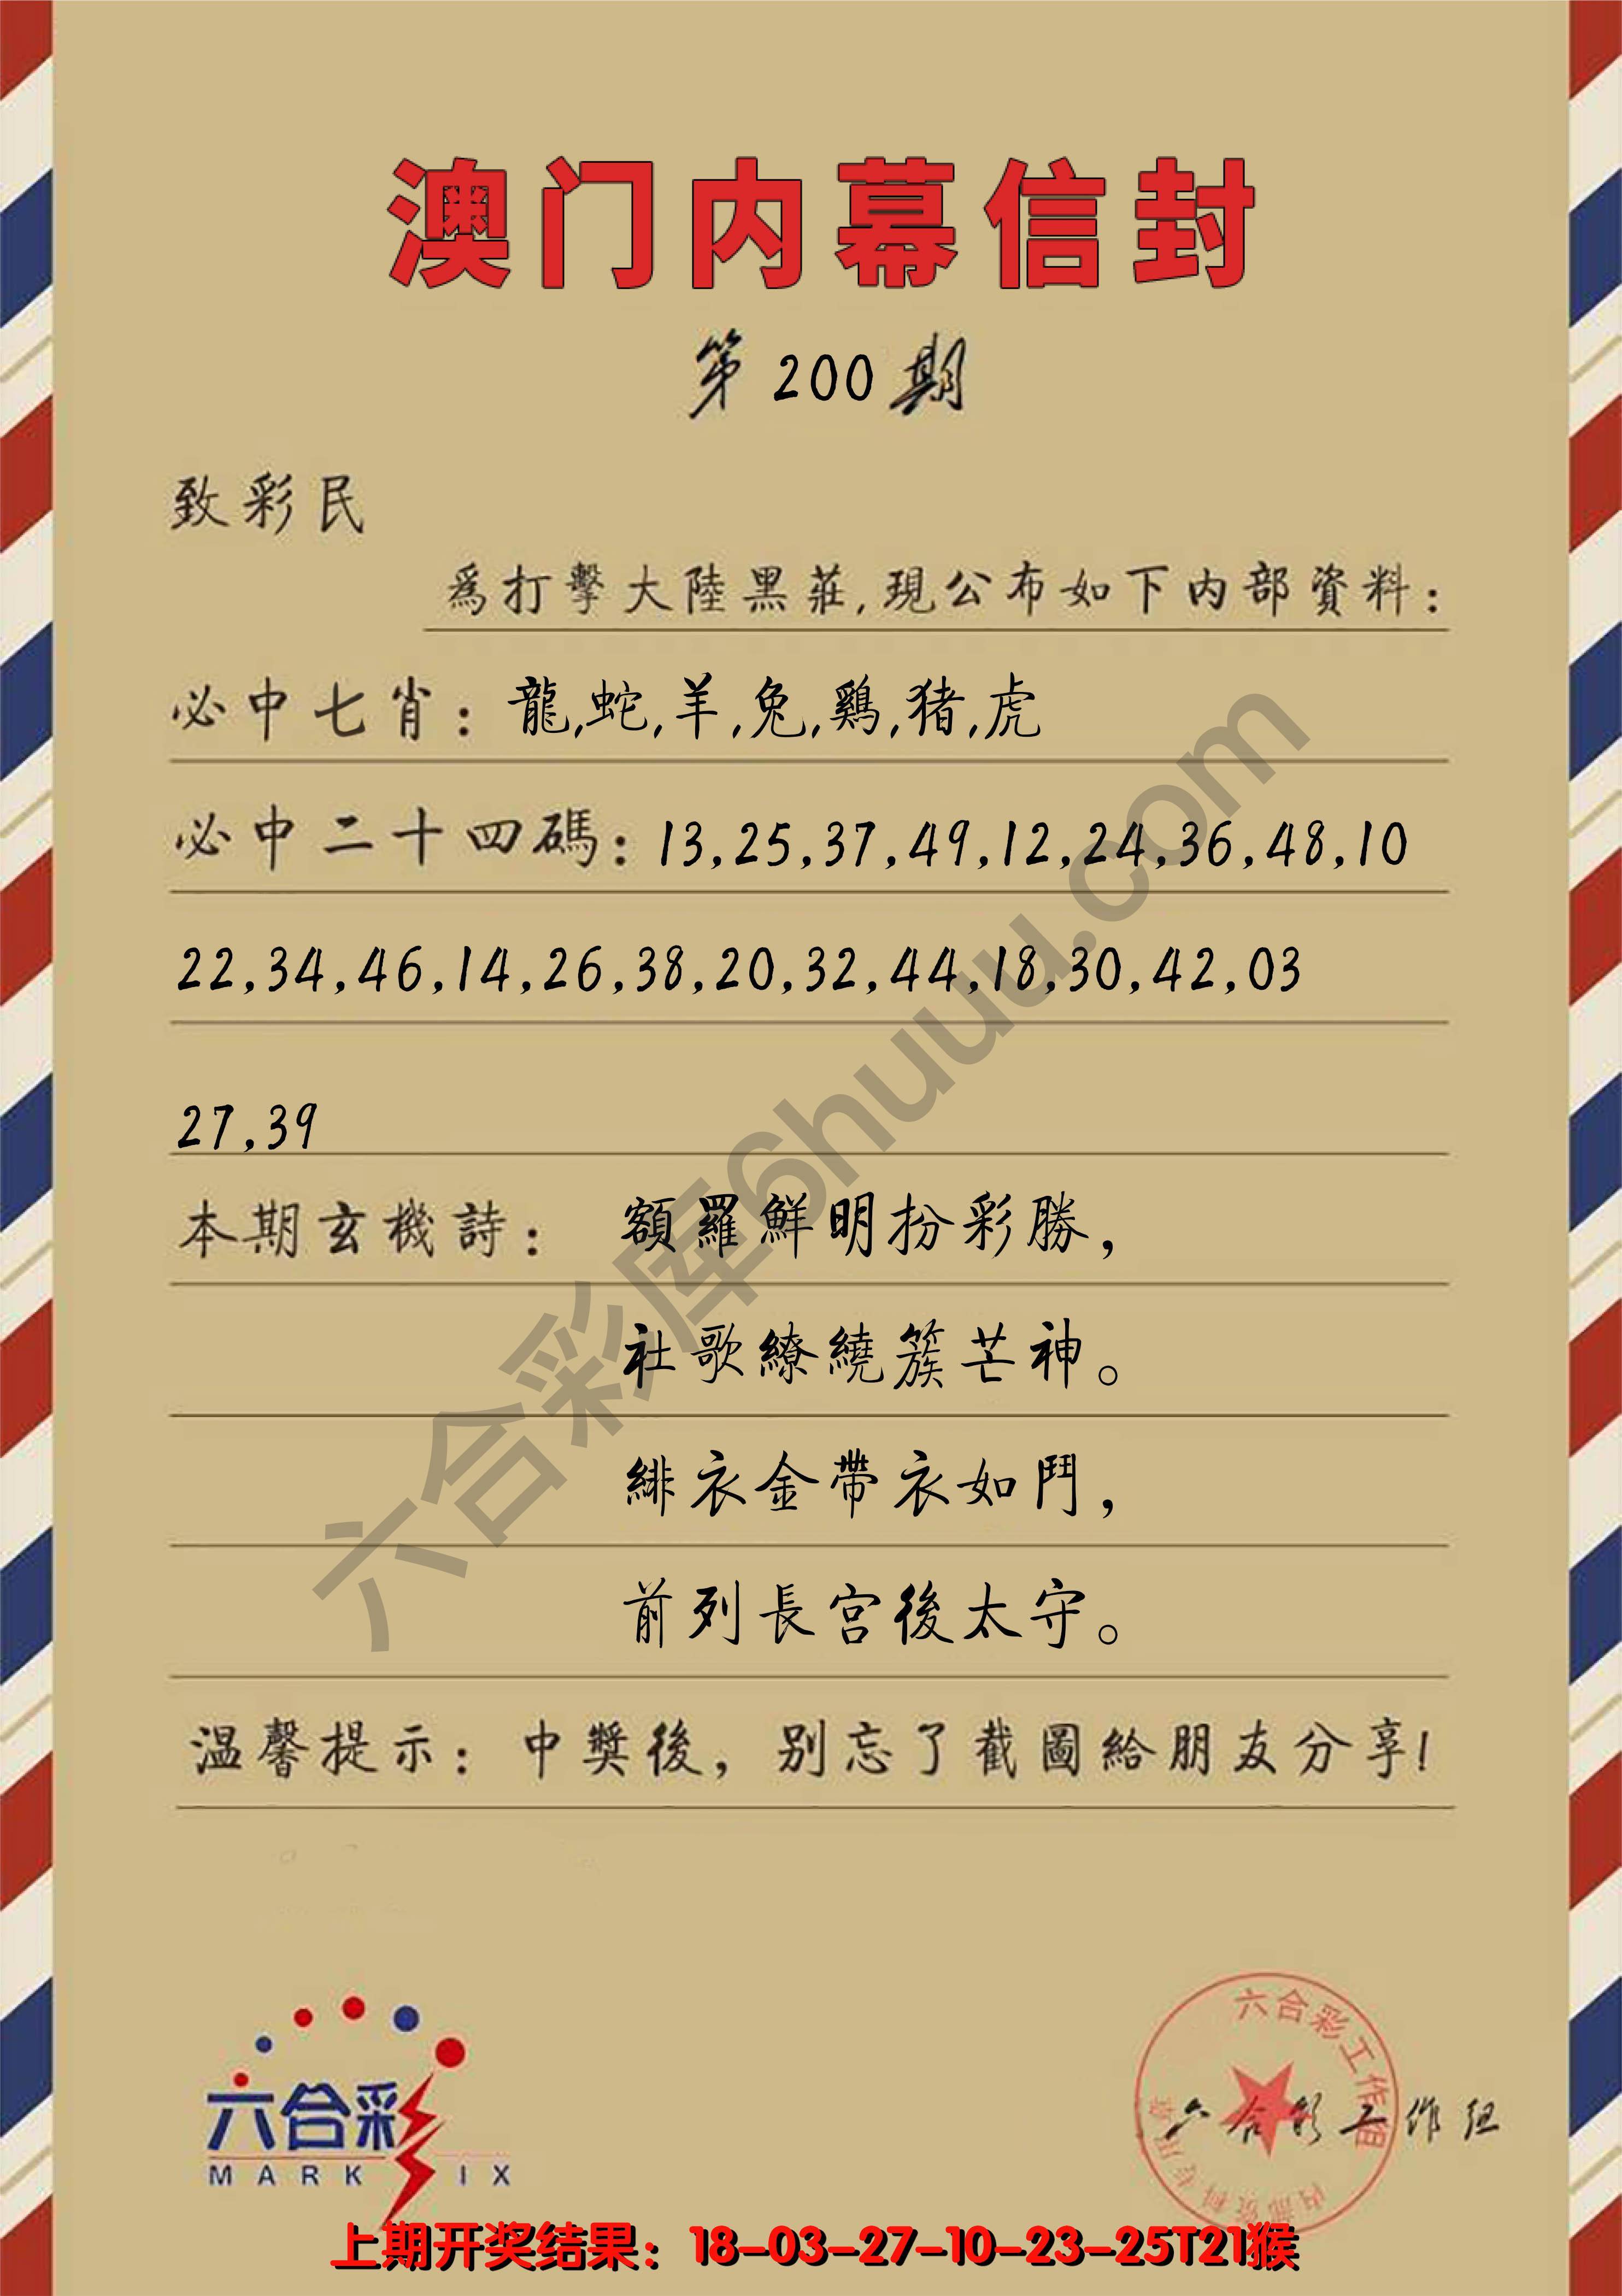 澳门内幕信封
第200期
致彩民
爲打擊大陸黑莊,現公布如下内部資料:
必中七肖: 龍,蛇,羊,兔,鷄,猪,虎
必中二十四碼: 13,25,37,49,12,24,36,48,10
22,34,46,14,26,38,20,32,44,18,30,42,03
27,39
本期玄機詩: 額羅鮮明扮彩勝,
社歌繚繞簇芒神。
緋衣金帶衣如鬥,
前列長宮後太守。
温馨提示: 中獎後, 别忘了截圖給朋友分享!
六合彩库6huuu.com
六合彩
MARK IX
六合彩工作组
六合彩工作组
上期开奖结果: 18-03-27-10-23-25T21猴